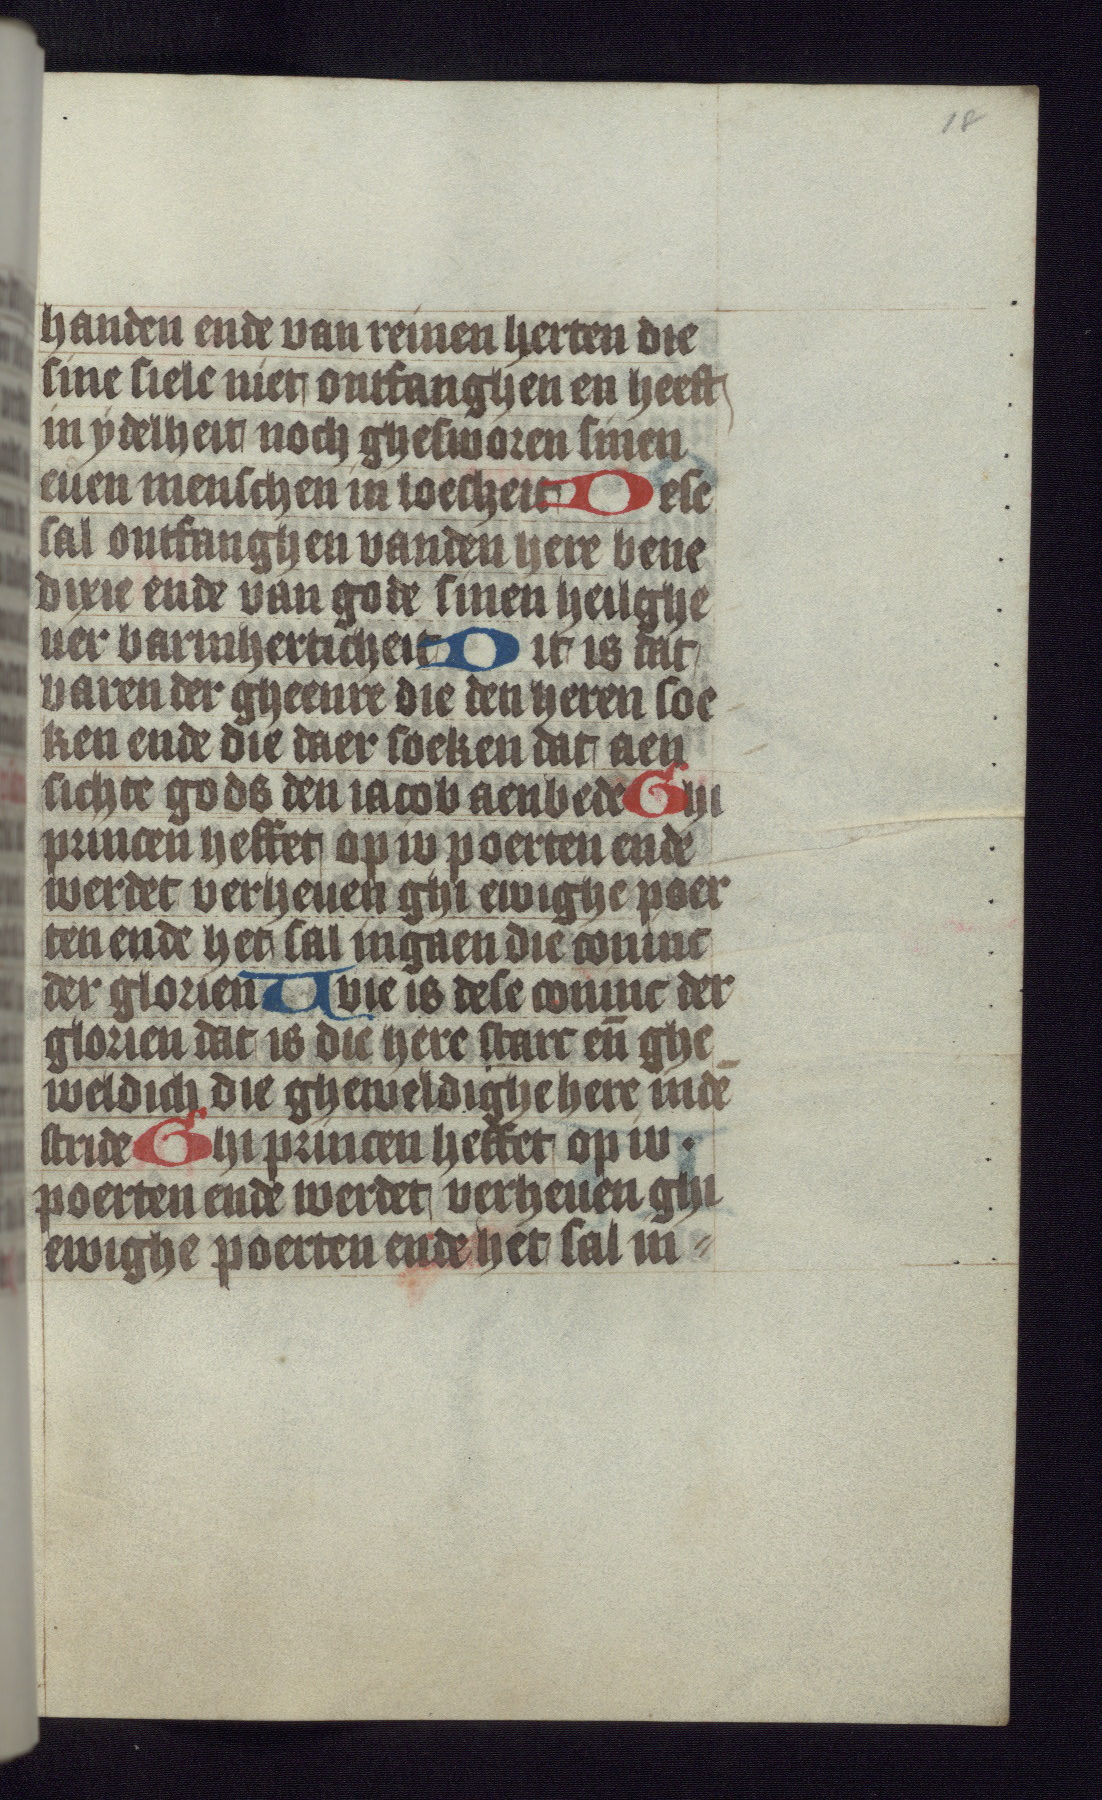 18
handen ende van reinen herten die
sine siele niet ontfanghen en heeft
in ydelheit noch ghesworen sinen
euen menschen in loesheit Dese
sal ontfanghen vanden here bene
dixie ende van gode sinen heilghe
uer barmherticheit Dit is dat
varen der gheenre die den heren soe
ken ende die daer soeken dat aen
sichte gods den iacob aenbede Ghi
princen heffet op iw poerten ende
werdet verheuen ghi ewighe poer
ten ende het sal ingaen die coninc
der glorien Wie is dese coninc der
glorien dat is die here starc en̄ ghe
weldich die gheweldighe here indē
stride Ghi princen heffet op iw .
poerten ende werdet verheuen ghi
ewighe poerten ende het sal in